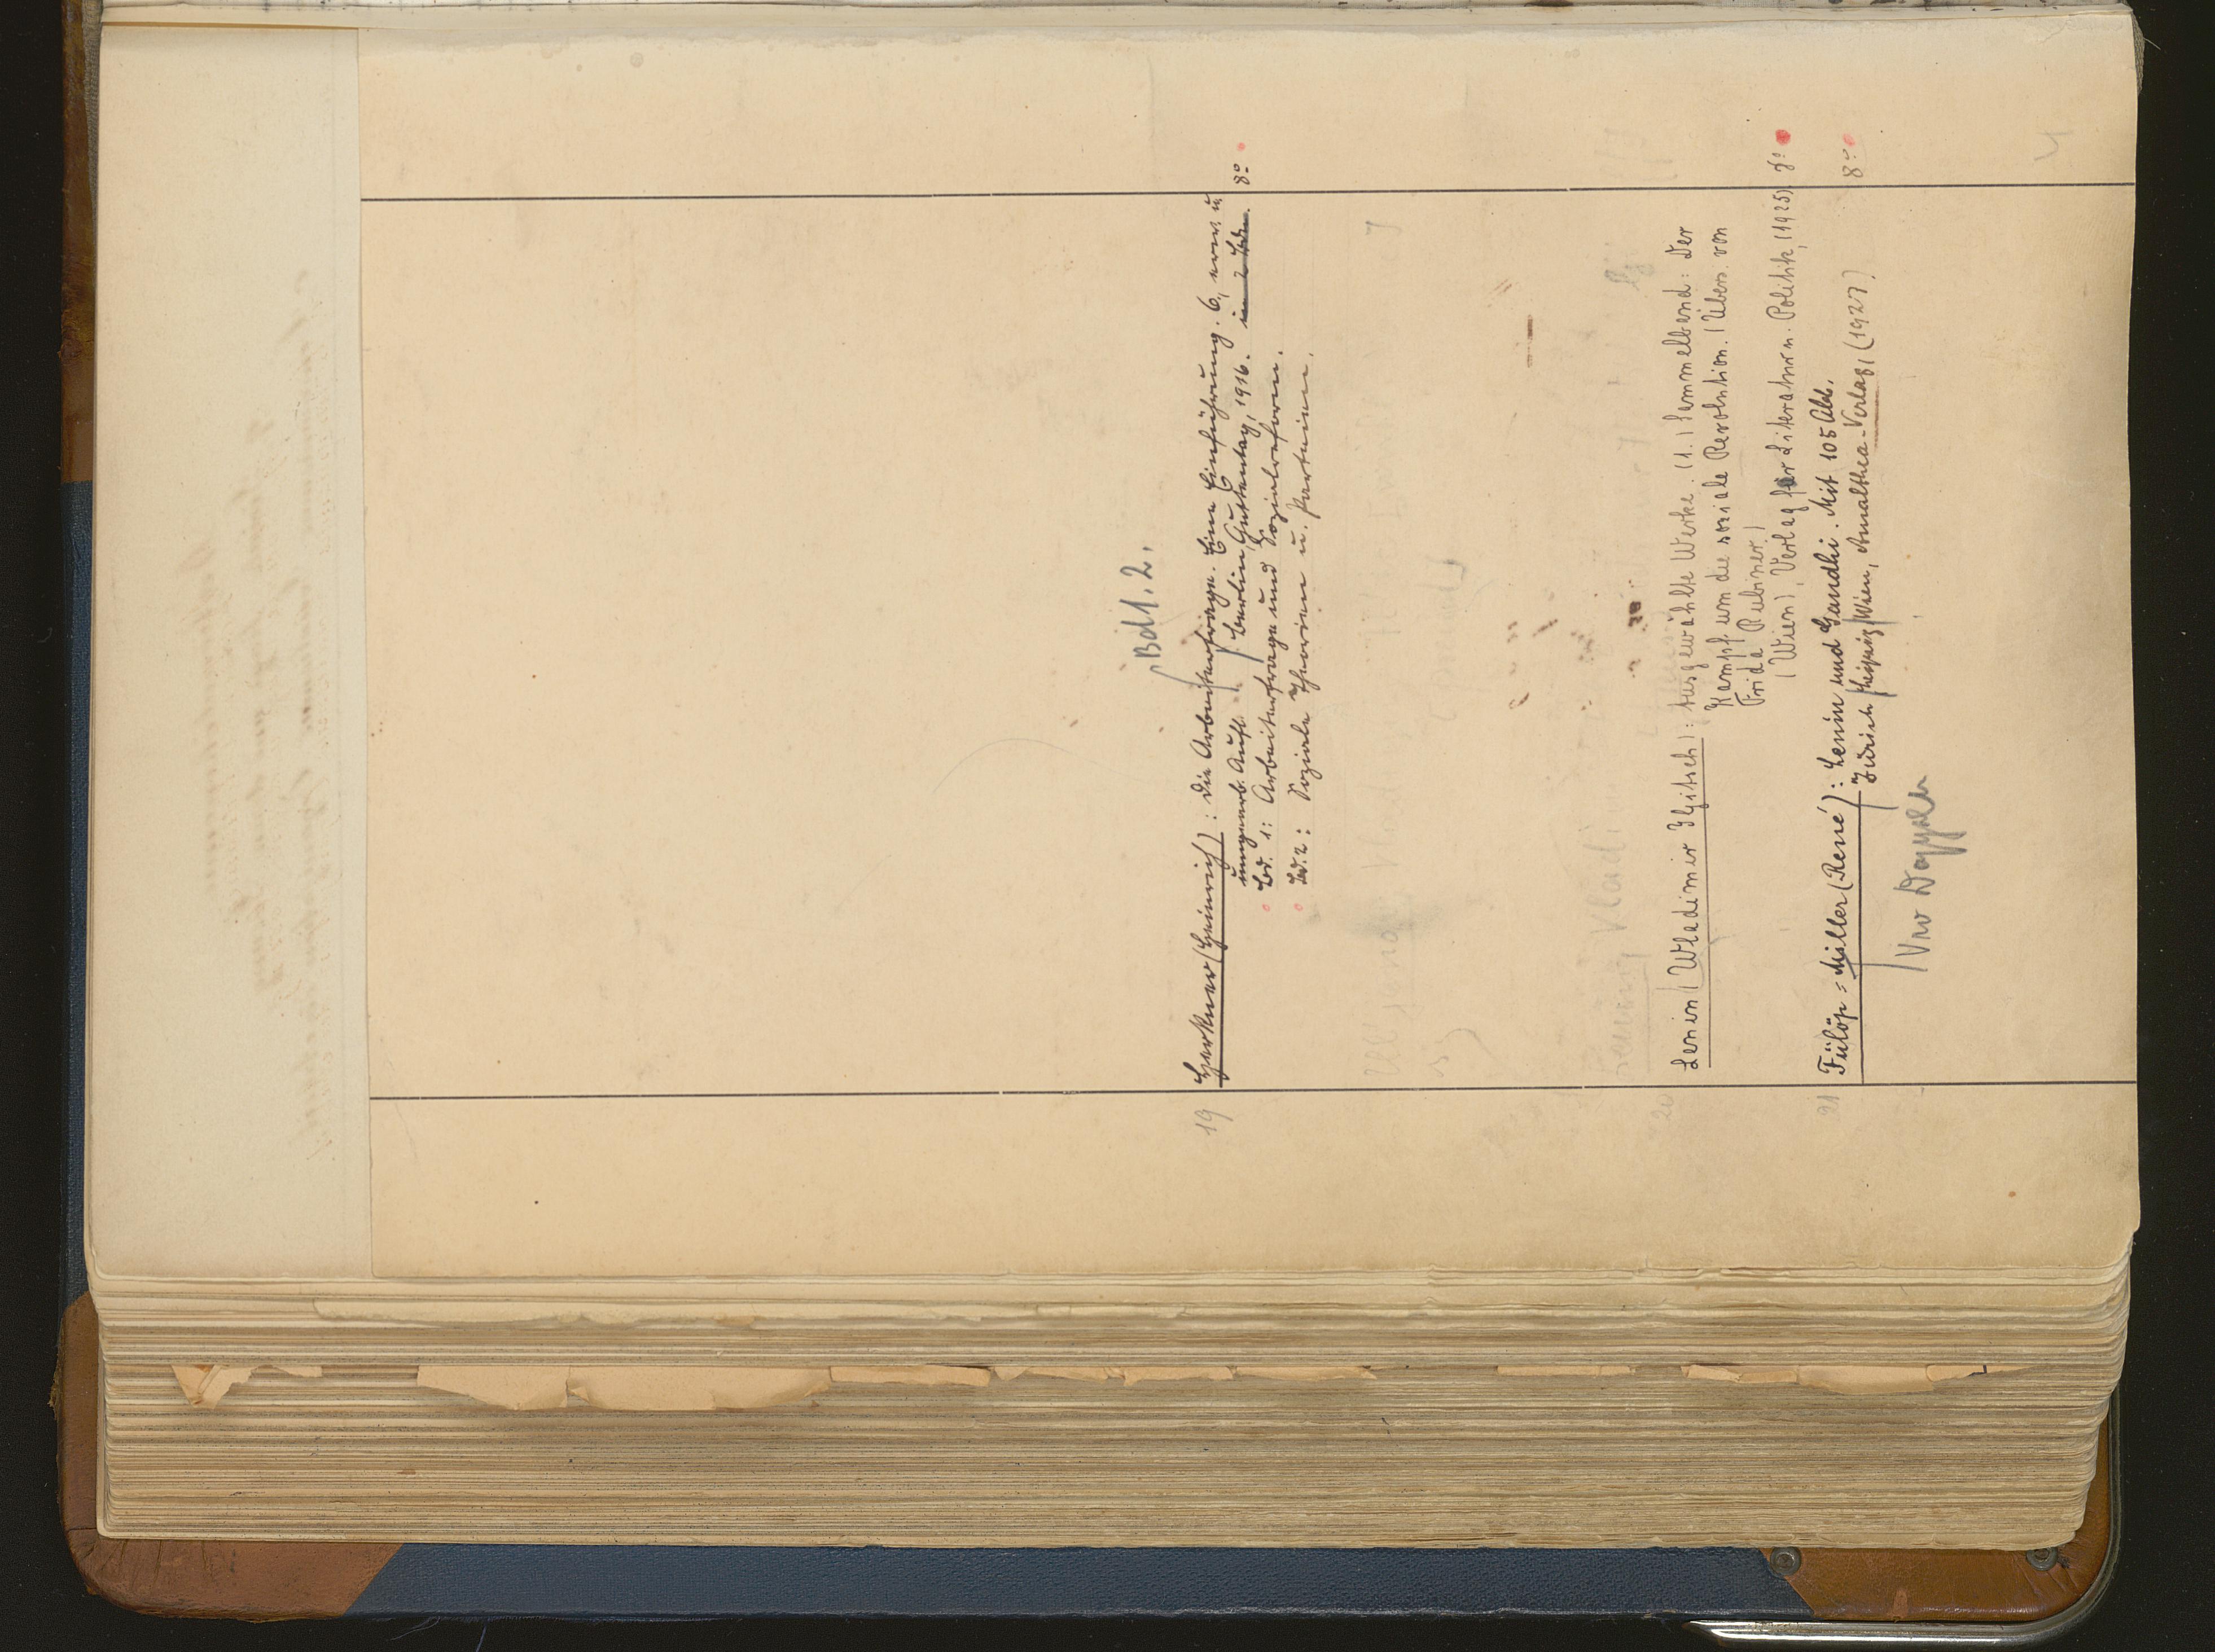 Bd 1. 2.
19 Herkner (Heinrich): Die Arbeiterfrage. Eine Einführung. 6., erw. u.
umgearb. Aufl. Berlin, Guttentag, 1916. in 2 Bdn. 8°
Bd. 1: Arbeiterfrage und Sozialreform.
Bd. 2: Soziale Theorien u. Parteien.
20 Lenin (Wladimir Iljitsch): Ausgewählte Werke. (1.) Sammelband: Der
Kampf um die soziale Revolution. (Übers. von
Frida Rubiner)
(Wien), Verlag für Literatur u. Politik, (1925). 8°
21 Fülöp=Miller (René): Lenin und Gandhi. Mit 105 Abb.
Zürich Leipzig Wien, Amalthea-Verlag, (1927). 8°